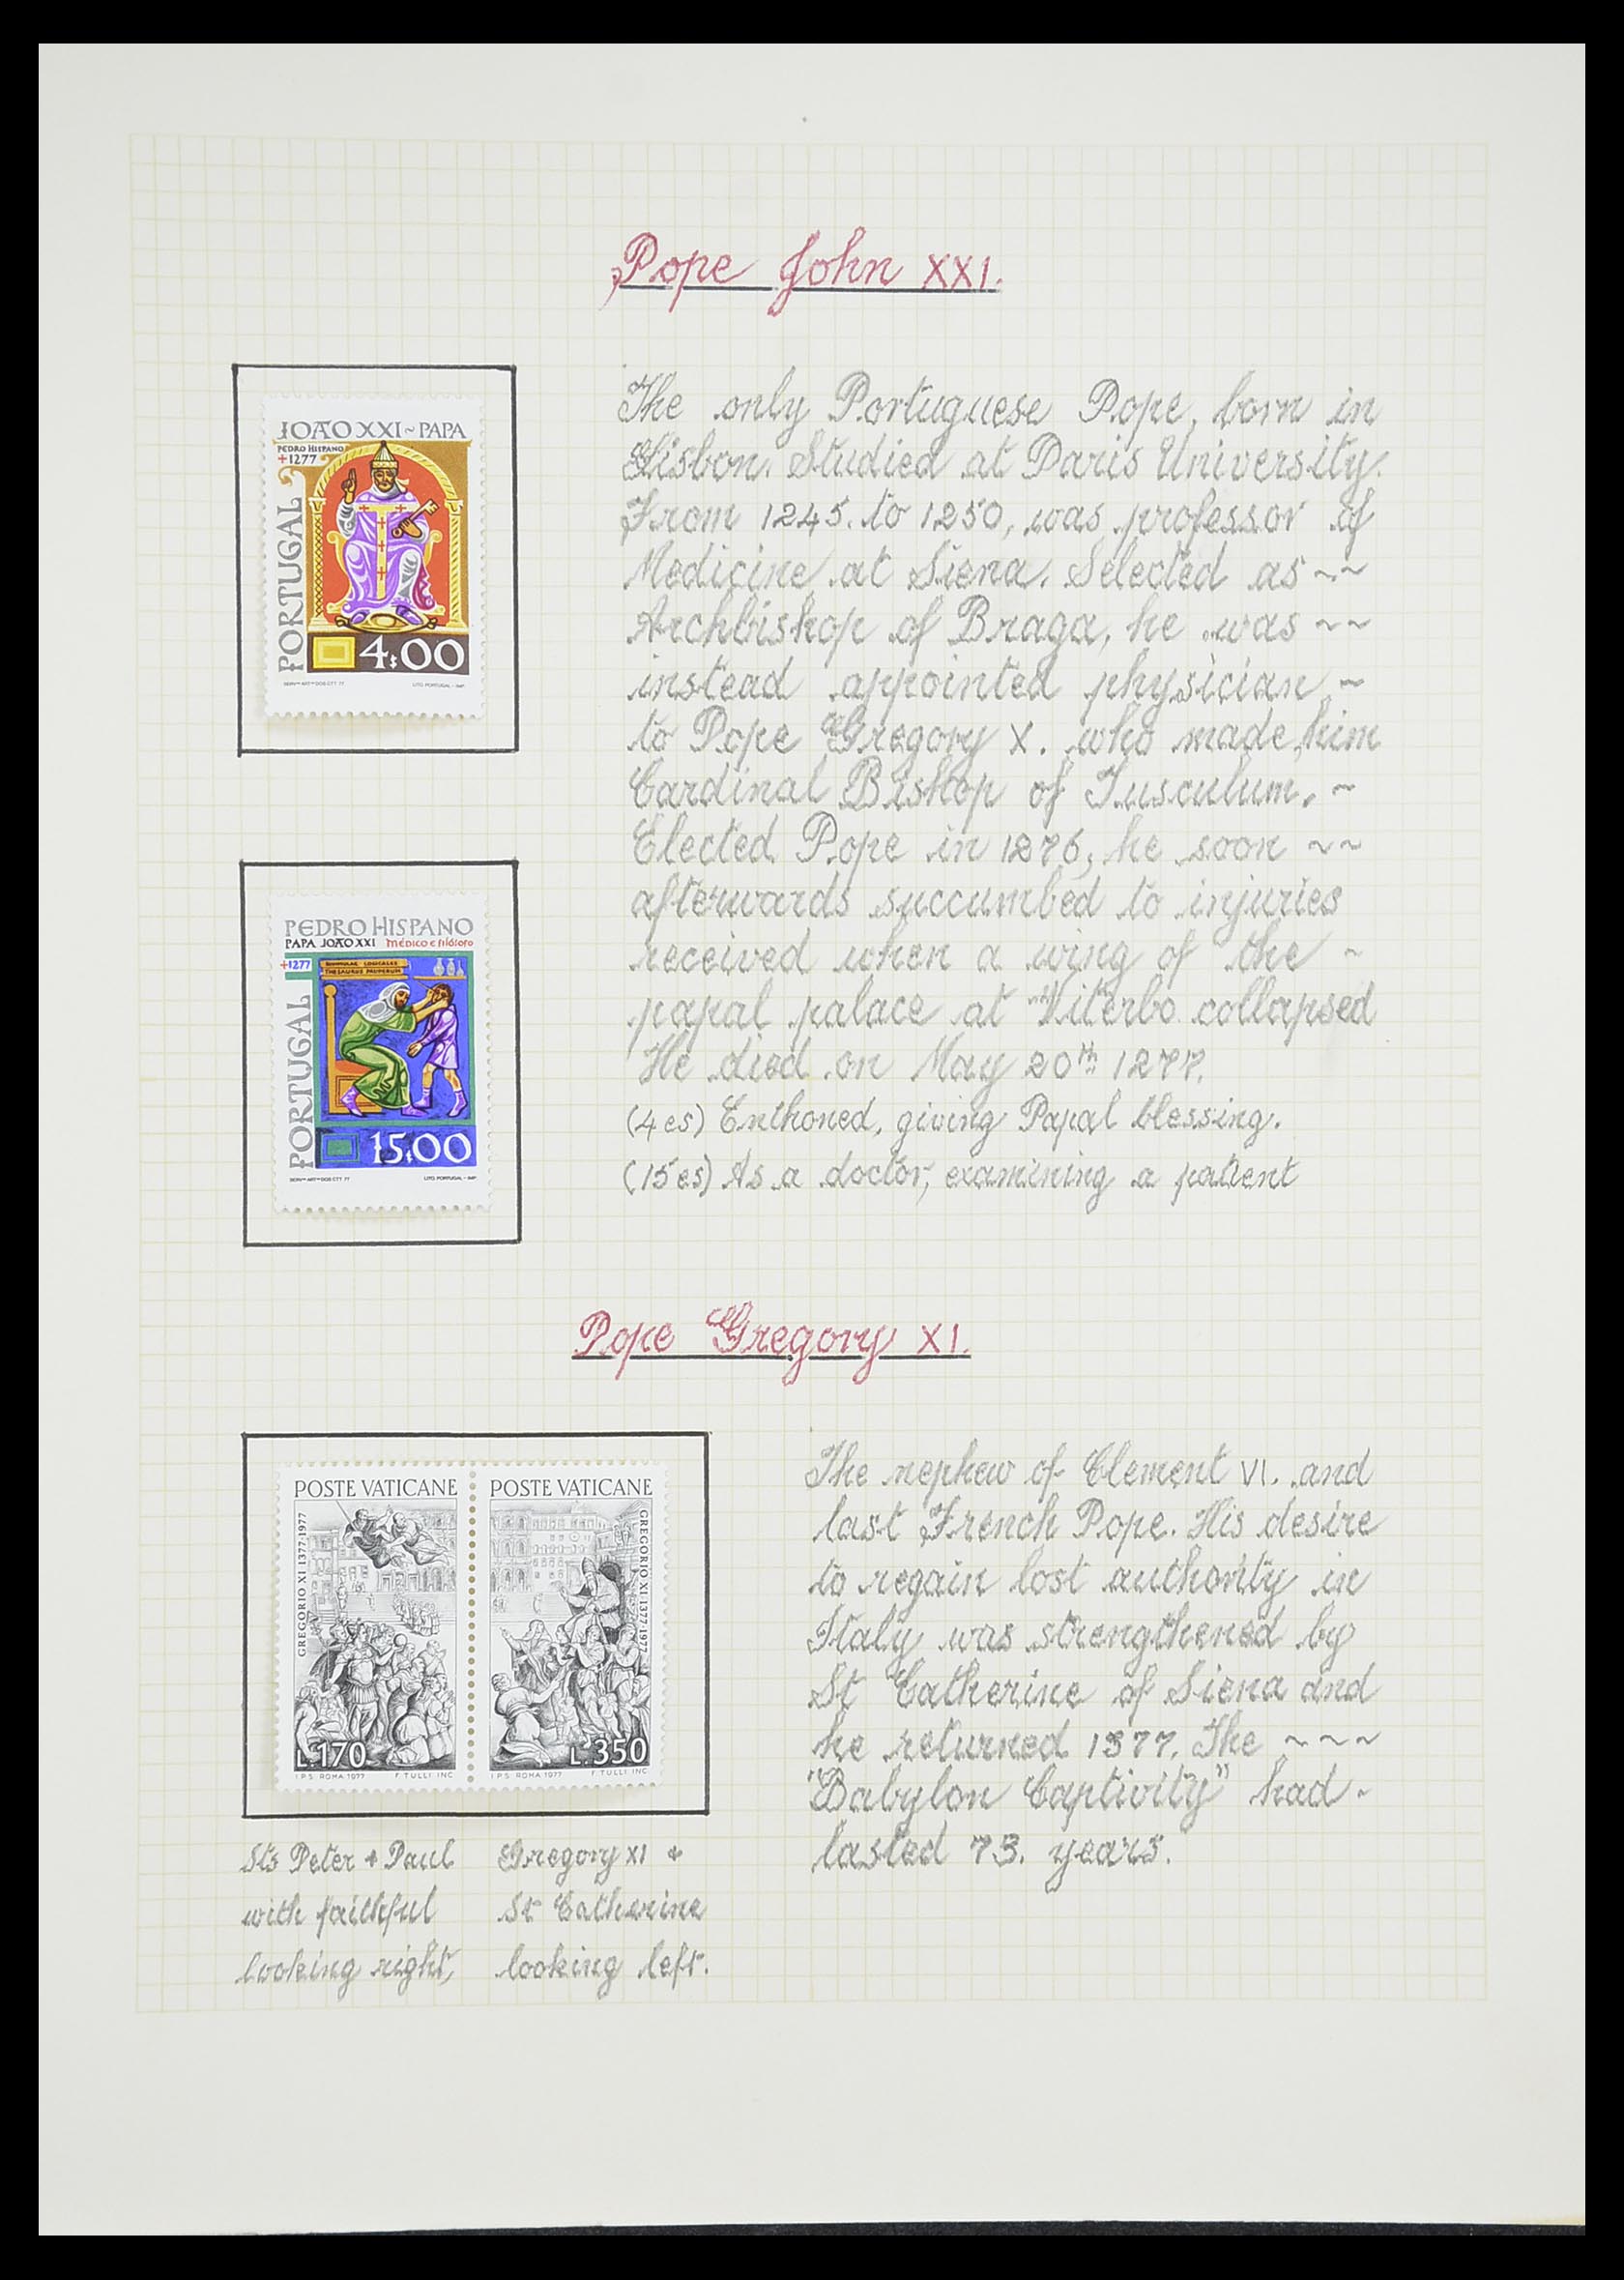 Pope John XXI.
JOAO XXI ~ PAPA
PEDRO HISPANO
+1277
PORTUGAL
4$00
SERVᵒˢ ARTᵒˢ DOS CTT 77 LITO. PORTUGAL - IMP.
The only Portuguese Pope, born in
Lisbon. Studied at Paris University.
From 1245. to 1250, was professor of
Medicine at Siena. Selected as ~~
Archbishop of Braga, he was ~~
instead appointed physician ~
to Pope Gregory X. who made him
Cardinal Bishop of Tusculum. ~
Elected Pope in 1276, he soon ~~
afterwards succumbed to injuries
received when a wing of the ~
papal palace at Viterbo collapsed
He died on May 20th 1277.
(4es) Enthoned, giving Papal blessing.
(15es) As a doctor, examining a patient
PEDRO HISPANO
PAPA JOAO XXI MÉDICO E FILÓSOFO
+1277
THESAURUS PAUPERUM
PORTUGAL
15$00
SERVᵒˢ ARTᵒˢ DOS CTT 77 LITO. PORTUGAL - IMP.
Pope Gregory XI.
POSTE VATICANE
GREGORIO XI 1377·1977
L.170
I.P.S. ROMA 1977 F. TULLI INC.
POSTE VATICANE
GREGORIO XI·1377·1977
L.350
I.P.S. ROMA 1977 F. TULLI INC
The nephew of Clement VI. and
last French Pope. His desire
to regain lost authority in
Italy was strengthened by
St Catherine of Siena and
he returned 1377. The ~~~
"Babylon Captivity" had ~
lasted 73. years.
Sts Peter + Paul
with faithful
looking right,
Gregory XI +
St Catherine
looking left.